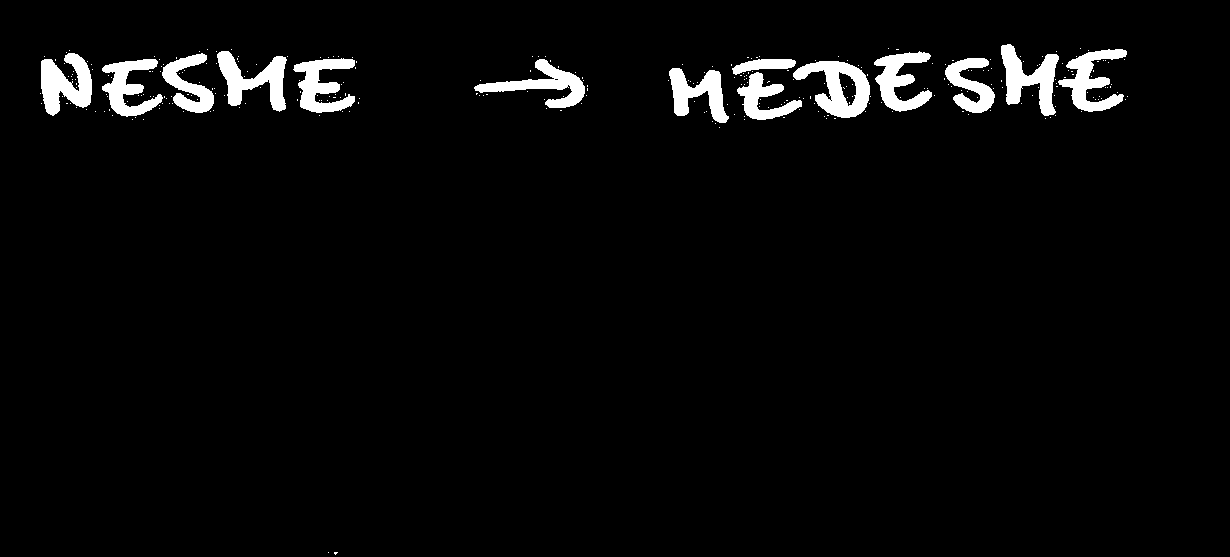 NESME → MEDESME